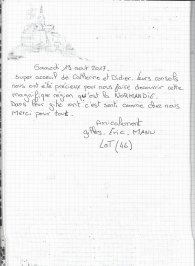 Samedi 19 août 2017.
Super accueil de Catherine et Didier. Leurs conseils
nous ont été précieux pour nous faire découvrir cette
magnifique région qu'est la NORMANDIE.
Dans leur gîte on s'est senti comme chez nous
Merci pour tout.
Amicalement
Gilles. Eric. MANU
LOT (46)